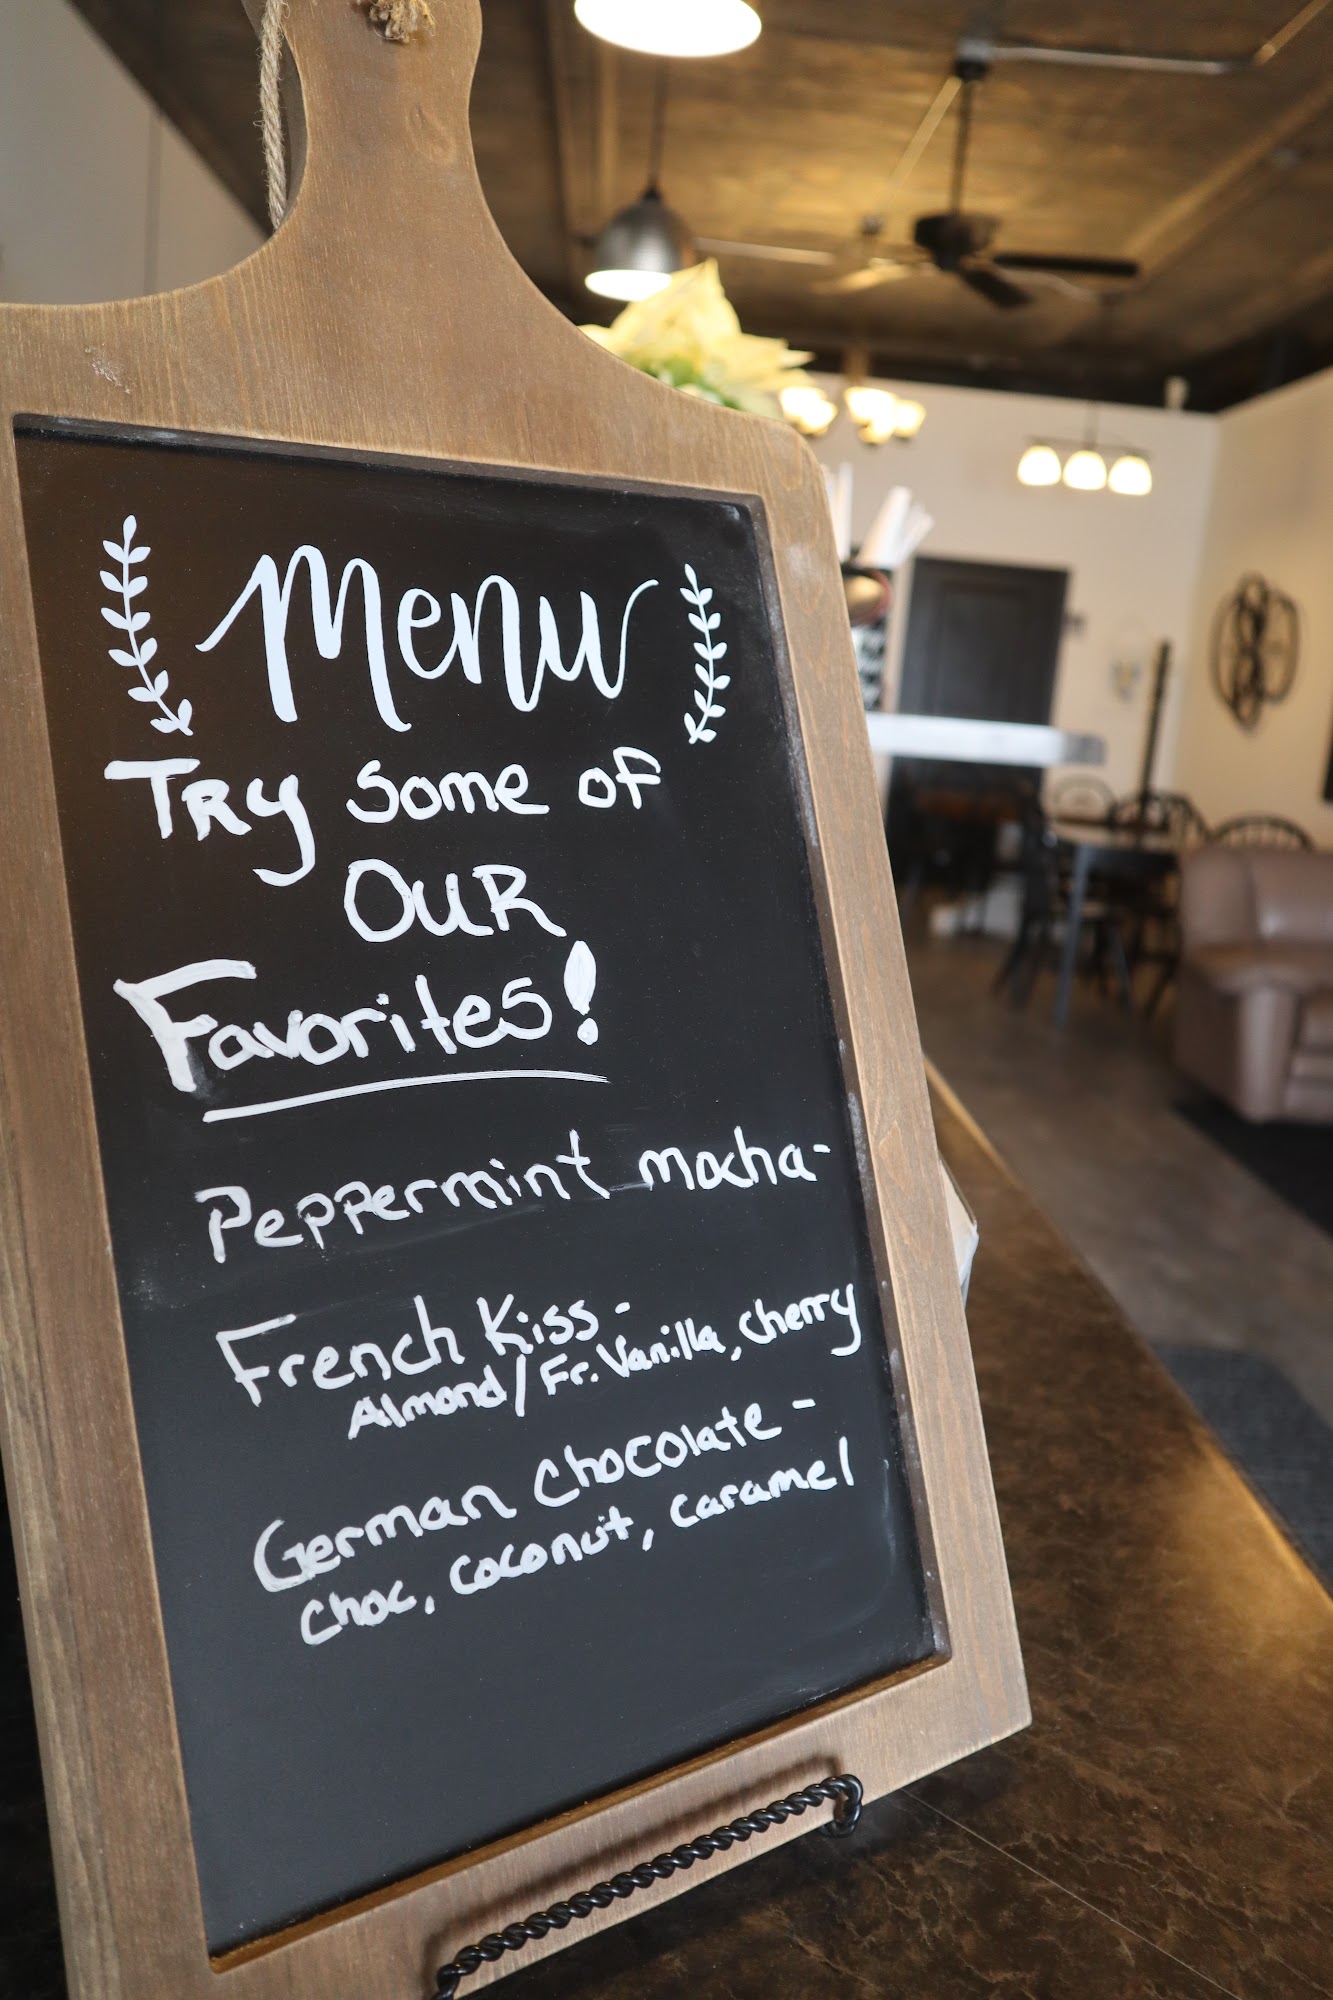 Menu
Try some of
OUR
Favorites!
Peppermint mocha-
French Kiss-
Almond/Fr. Vanilla, cherry
German chocolate-
choc, coconut, caramel